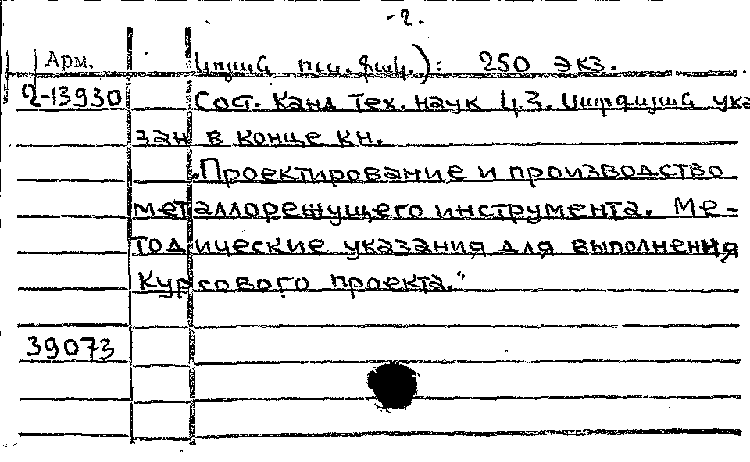 -2.
Арм. ուս. ֆակ.): 250 экз.
2-13930 Сост. Канд. тех. наук Ц.З. ука
зан в конце кн.
„Проектирование и производство
металлорежущего инструмента. Ме-
тодические указания для выполнения
Курсового проекта."
39073